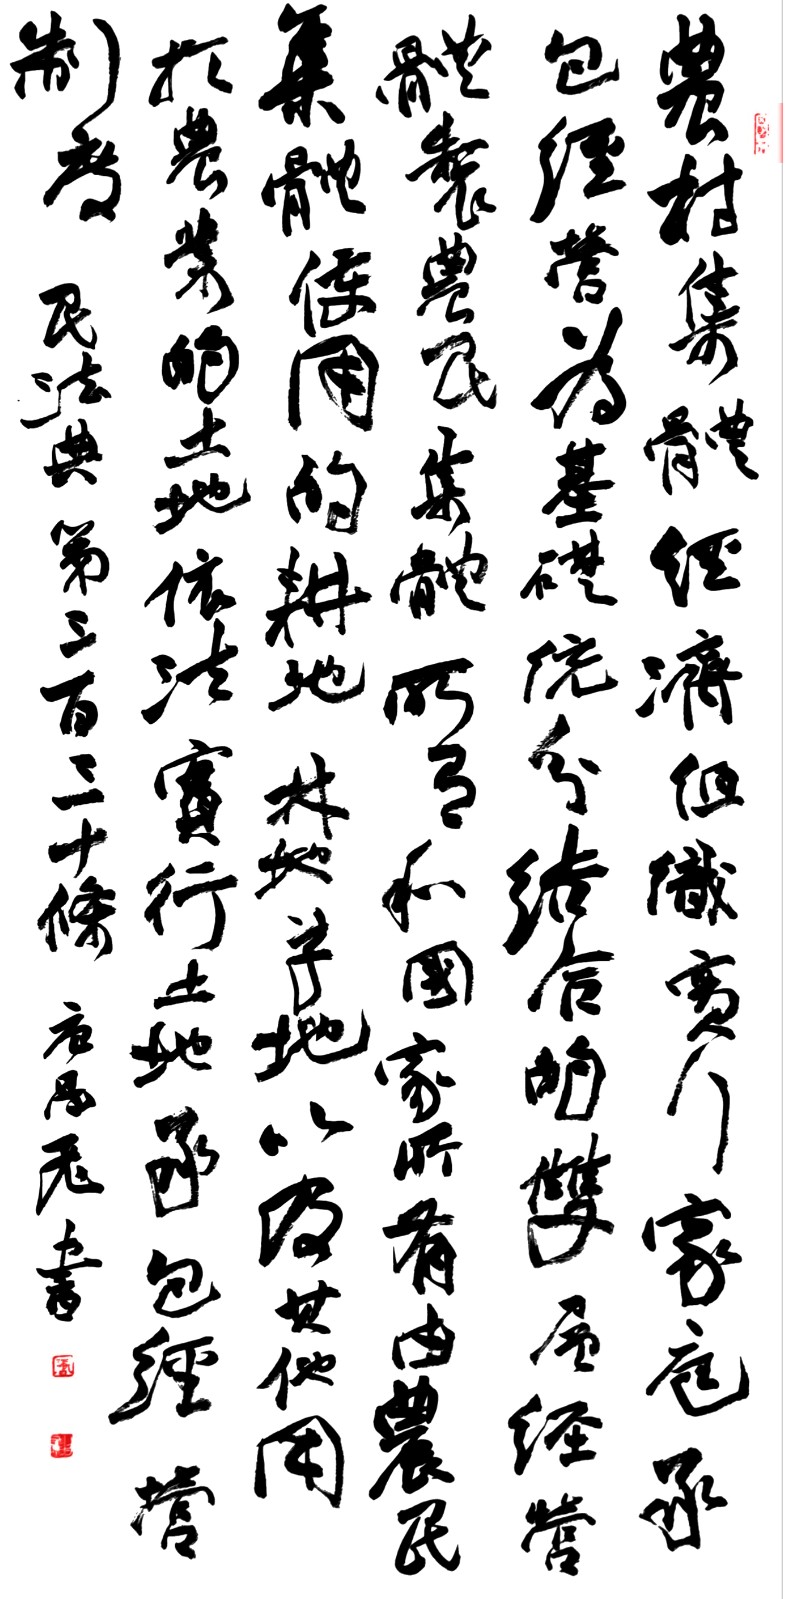 農村集體經濟組織實行家庭承
包經營為基礎統分結合的雙層经營
體製農民集體所有和國家所有由農民
集體使用的耕地林地草地以及其他用
於農業的土地依法實行土地承包經營
制度 民法典第三百三十條 書